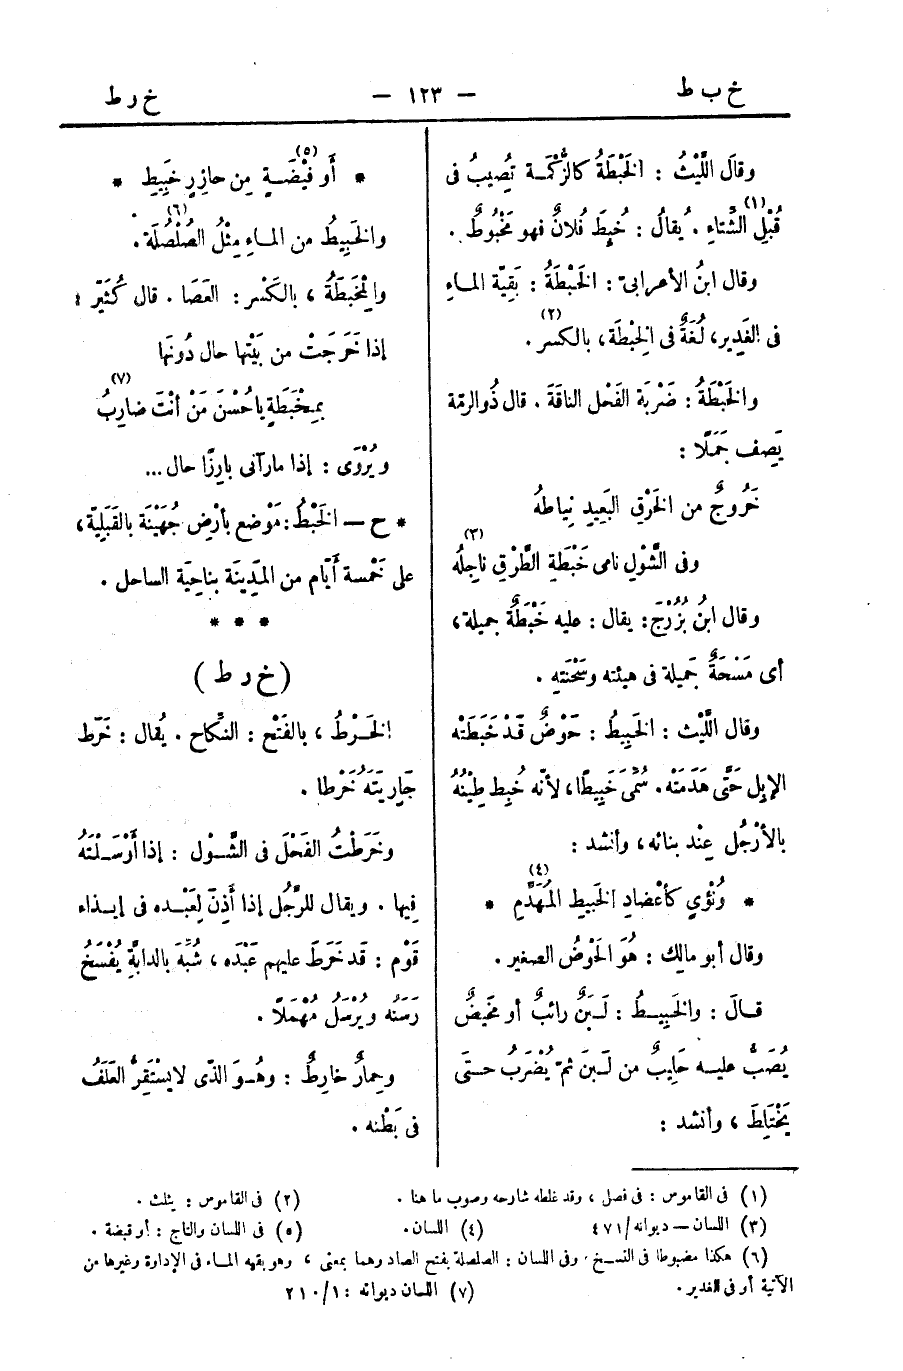 خ ب ط
— ١٢٣ —
خ ر ط
وقالَ اللَّيْثُ : الخَبْطَةُ كالزُّكْمَة تُصِيبُ فى
قُبْلِ الشِّتاءِ (١) . يُقالُ : خُبِطَ فُلانٌ فهو مَخْبُوطٌ .
وقال ابنُ الأعرابىّ : الخَبْطَةُ : بَقِيَّة المـاءِ
فى الغَدِير، لُغَةٌ فى الخِبْطَة، بالكسر (٢) .
والخَبْطَةُ : ضَرْبَة الفَحْل الناقَةَ . قال ذُو الرمّة
يَصِف جَمَلًا :
خَرُوجٌ من الخَرْقِ البَعِيدِ نِياطهُ
وفى الشَّوْلِ نامى خَبْطَةِ الطَّرْقِ ناجِلُه (٣)
وقال ابنُ بُزُرْجَ : يقال : عليه خَبْطَةٌ جميلة،
أى مَسْحَةٌ جَميلة فى هيئته وسَحْنَتهِ .
وقال اللَّيْث : الخَبِيطُ : حَوْضٌ قَدْ خَبَطَتْه
الإبِل حَتَّى هَدَمَتْه . سُمِّىَ خَبِيطًا، لأنّه خُبِط طِينُهُ
بالأرْجُل عِنْد بنائه، وأنشد :
* ونُؤْىٍ كأَعْضادِ الخَبيطِ المُهَدَّمِ * (٤)
وقال أبو مالك : هُوَ الحَوْضُ الصغير .
قـالَ : والخَبِيـطُ : لَـبَنٌ رائبٌ أو مَخِيضٌ
يُصَبُّ عليـه حَلِيبٌ من لَـبَنَ ثمّ يُضْرَبُ حـتَّى
يَخْتَاطَ ، وأنشد :
* أَو فَيْضَـةٍ مِن حازِرٍ خَبِيطِ * (٥)
والخَبِيطُ من المـاءِ مِثْلُ الصُّلْصُلَة (٦) .
والمِخْبَطَةُ ، بالكَسْر : العَصَا . قال كُثَيِّر :
إذا خَرَجَتْ من بَيْتِها حال دُونَها
بمِخْبَطَةٍ ياحُسْنَ مَنْ أنْتَ ضارِبُ (٧)
ويُرْوَى : إذا مارآنى بارِزًا حال ...
* ح — الخَبْطُ : مَوْضع بأرْضِ جُهَيْنَة بالقَبَلِيّة،
على خَمْسة أَيّام من المَدِينَة بناحِيَة الساحل .
* * *
( خ ر ط )
الخَـرْطُ ، بالفَتْح : النِّكاح . يُقال : خَرَط
جَارِيَتَهُ خَرْطا .
وخَرَطْتُ الفَحْلَ فى الشَّـوْل : إذا أَرْسَـلْتَهُ
فِيها . ويقال للرَّجُل إذا أَذِنَ لِعَبْـده فى إيـذاء
قَوْم : قَد خَرَطَ عليهم عَبْدَه ، شُبِّهَ بالدابَّةِ يُفْسَخُ
رَسَنُه ويُرْسَلُ مُهْمَلاً .
وحِمارٌ خارِطٌ : وهُـوَ الذّى لا يسْتَقِرُّ العَلَفُ
فى بَطْنه .
(١) فى القاموس : فى فصل ، وقد غلطه شارحه وصوب ما هنا .
(٢) فى القاموس : يثلث .
(٣) اللسان — ديوانه/٤٧١
(٤) اللسان.
(٥) فى اللسان والتاج : أو قبضة .
(٦) هكذا مضبوطا فى النسـخ . وفى اللسان : الصلصلة بفتح الصاد وهما بمعنى ، وهو بقيه المـاء فى الإدارة وغيرها من
الآنية أو فى الغدير .
(٧) اللسان ديوانه : ٢١٠/١